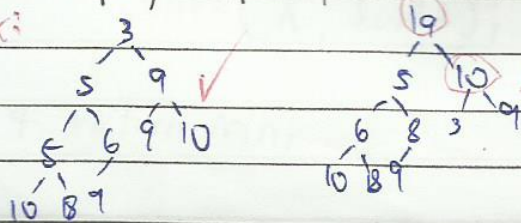 3
5 9
5 6 9 10
10 18 9
19
5 10
6 8 3 9
10 18 9